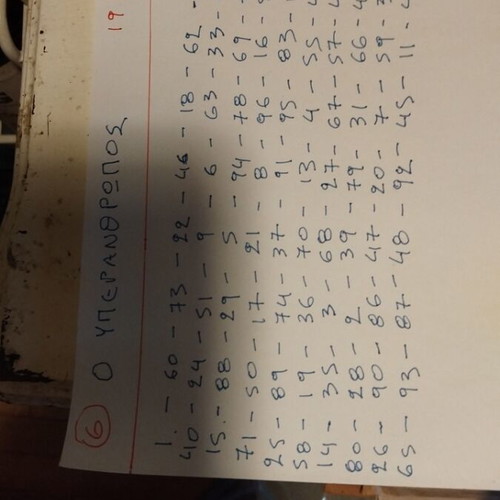 6 Ο ΥΠΕΡΑΝΘΡΩΠΟΣ 19
1. - 60 - 73 - 22 - 46 - 18 - 62 -
40 - 24 - 51 - 9 - 6 - 63 - 33 -
15. - 88 - 29 - 5 - 94 - 78 - 69 -
71 - 50 - 17 - 21 - 8 - 96 - 16 -
25 - 89 - 74 - 37 - 91 - 95 - 83 -
58 - 19 - 36 - 70 - 13 - 4 - 55 -
14 - 35 - 3 - 68 - 27 - 67 - 57 -
80 - 28 - 2 - 39 - 79 - 31 - 66 -
26 - 90 - 86 - 47 - 20 - 7 - 59 -
65 - 93 - 87 - 48 - 92 - 45 - 11 -